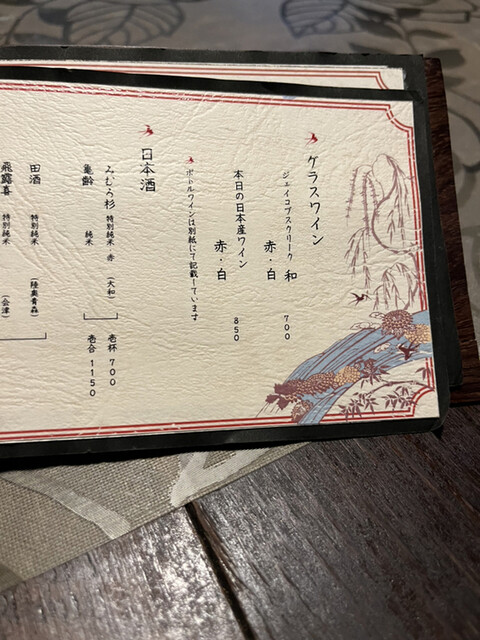 グラスワイン
ジェイコブスクリーク 和
赤・白 700
本日の日本産ワイン
赤・白 850
ボトルワインは別紙にて記載しています
日本酒
みむろ杉 特別純米 赤 (大和) 壱杯 700
亀齢 純米 壱合 1150
田酒 特別純米 (陸奥青森)
飛露喜 特別純米 (会津)